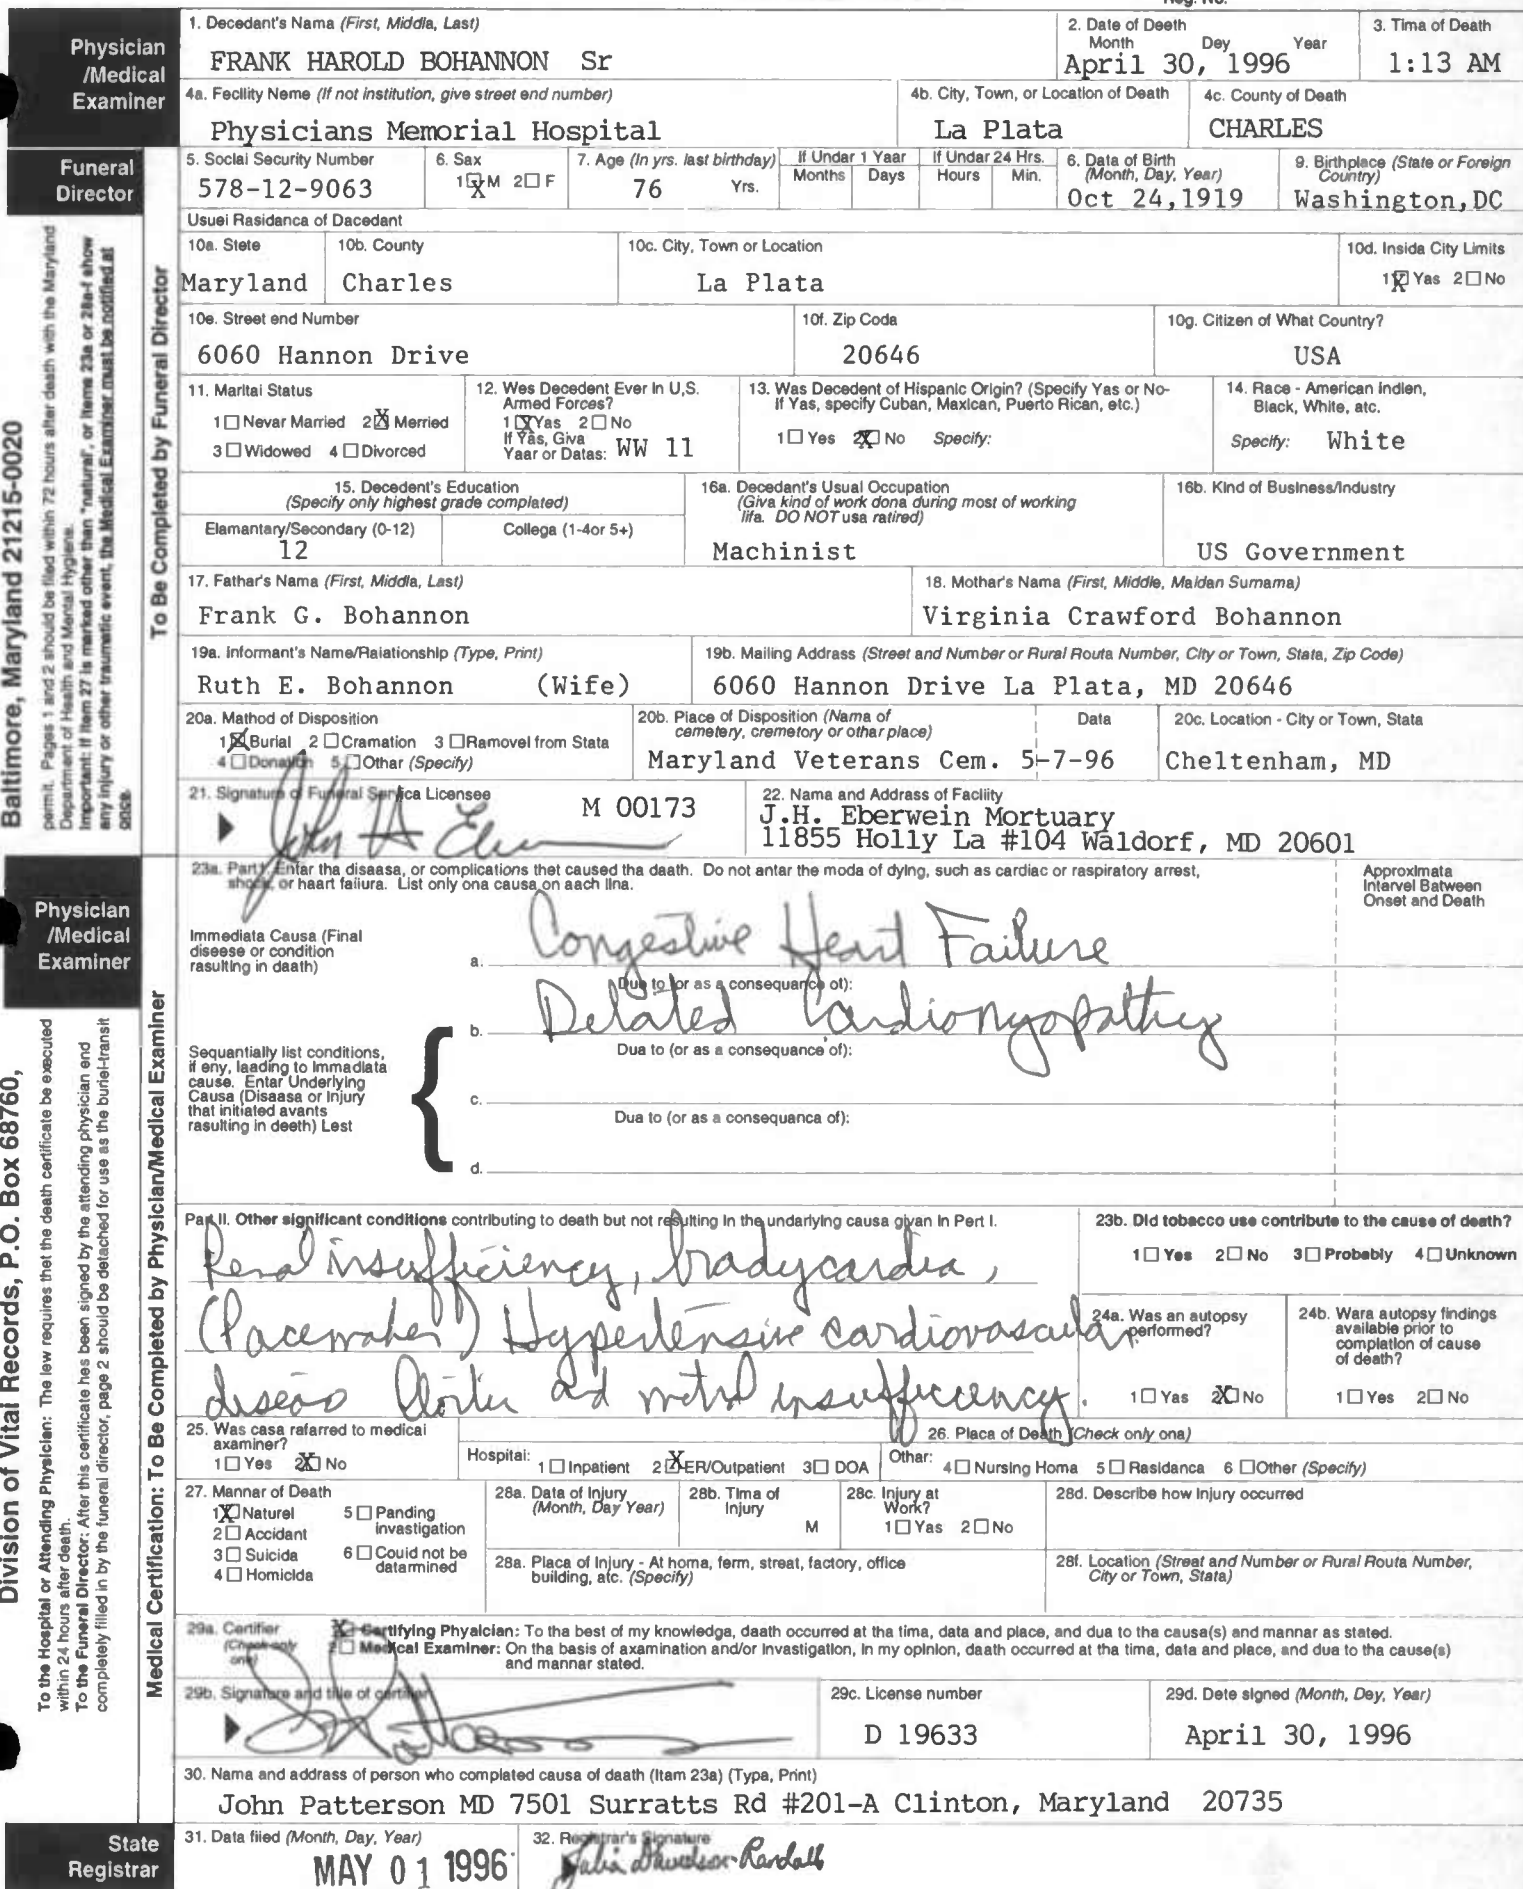 Reg. No.
Physician /Medical Examiner
1. Decedant's Name (First, Middle, Last)
FRANK HAROLD BOHANNON Sr
2. Date of Deeth
Month Dey Year
April 30, 1996
3. Tima of Death
1:13 AM
4a. Fecility Neme (If not institution, give street end number)
Physicians Memorial Hospital
4b. City, Town, or Location of Death
La Plata
4c. County of Death
CHARLES
Funeral Director
5. Social Security Number
578-12-9063
6. Sax
1 X M 2 □ F
7. Age (In yrs. last birthday)
76 Yrs.
If Under 1 Year
Months Days
If Under 24 Hrs.
Hours Min.
6. Data of Birth
(Month, Day, Year)
Oct 24,1919
9. Birthplace (State or Foreign Country)
Washington,DC
Usuei Rasidanca of Dacedant
10a. Stete
Maryland
10b. County
Charles
10c. City, Town or Location
La Plata
10d. Insida City Limits
1 X Yas 2 □ No
10e. Street end Number
6060 Hannon Drive
10f. Zip Coda
20646
10g. Citizen of What Country?
USA
11. Maritai Status
1 □ Nevar Married 2 X Merried
3 □ Widowed 4 □ Divorced
12. Wes Decedent Ever In U.S.
Armed Forces?
1 X Yas 2 □ No
If Yas, Giva
Yaar or Datas: WW 11
13. Was Decedent of Hispanic Origin? (Specify Yas or No-
If Yas, specify Cuban, Maxican, Puerto Rican, etc.)
1 □ Yes 2 X No Specify:
14. Race - American Indien,
Black, White, atc.
Specify: White
15. Decedent's Education
(Specify only highest grade complated)
Elamantary/Secondary (0-12)
12
Collega (1-4or 5+)
16a. Decedant's Usual Occupation
(Giva kind of work dona during most of working
lifa. DO NOT usa ratired)
Machinist
16b. Kind of Business/Industry
US Government
17. Fathar's Name (First, Middla, Last)
Frank G. Bohannon
18. Mothar's Name (First, Middle, Maidan Surnama)
Virginia Crawford Bohannon
19a. Informant's Name/Ralationship (Type, Print)
Ruth E. Bohannon (Wife)
19b. Mailing Address (Street and Number or Rural Routa Number, City or Town, Stata, Zip Code)
6060 Hannon Drive La Plata, MD 20646
20a. Mathod of Disposition
1 X Burial 2 □ Cramation 3 □ Ramovel from Stata
4 □ Donation 5 □ Othar (Specify)
20b. Place of Disposition (Nama of
cemetery, cremetory or othar place)
Data
Maryland Veterans Cem. 5-7-96
20c. Location - City or Town, Stata
Cheltenham, MD
21. Signature of Funeral Service Licensee
M 00173
22. Name and Address of Facility
J.H. Eberwein Mortuary
11855 Holly La #104 Waldorf, MD 20601
Physician /Medical Examiner
23a. Part I. Entar tha disaasa, or complications thet caused tha daath. Do not antar the moda of dying, such as cardiac or raspiratory arrest,
shock, or haart failura. List only ona causa on aach lina.
Approximata
Intervel Batween
Onset and Death
Immediata Causa (Final
diseese or condition
rasulting in daath)
a. Congestive Heart Failure
Due to (or as a consequance of):
b. Delated Cardiomyopathy
Dua to (or as a consequance of):
Sequantially list conditions,
if eny, laading to immadiata
cause. Entar Underlying
Causa (Disaasa or Injury
that initiated avants
rasulting in deeth) Lest
c.
Dua to (or as a consequanca of):
d.
Part II. Other significant conditions contributing to death but not resulting in the undarlying causa givan in Pert I.
Renal insufficiency, bradycardia,
(Pacemaker) Hypertensive cardiovascular
diseas Aortic ad mitral insufficiency.
23b. Did tobacco use contribute to the cause of death?
1 □ Yes 2 □ No 3 □ Probably 4 □ Unknown
24a. Was an autopsy performed?
1 □ Yas 2 X No
24b. Wara autopsy findings
available prior to
complation of cause
of death?
1 □ Yes 2 □ No
25. Was casa rafarred to medicai
axaminer?
1 □ Yes 2 X No
26. Placa of Death (Check only ona)
Hospital: 1 □ Inpatient 2 X ER/Outpatient 3 □ DOA
Othar: 4 □ Nursing Homa 5 □ Rasidanca 6 □ Other (Specify)
27. Mannar of Death
1 X Naturel 5 □ Panding invastigation
2 □ Accidant
3 □ Suicida 6 □ Could not be datarmined
4 □ Homicida
28a. Data of Injury
(Month, Day Year)
28b. Tima of
Injury
M
28c. Injury at
Work?
1 □ Yas 2 □ No
28d. Describe how injury occurred
28a. Placa of Injury - At homa, ferm, streat, factory, office
building, atc. (Specify)
28f. Location (Streat and Number or Rural Routa Number,
City or Town, Stata)
29a. Certifier
(Check only
one)
X Certifying Phyaician: To tha best of my knowledga, daath occurred at tha tima, data and place, and due to tha causa(s) and mannar as stated.
2 □ Medical Examiner: On tha basis of axamination and/or invastigation, in my opinion, daath occurred at tha time, data and placa, and due to tha cause(s)
and mannar stated.
29b. Signature and title of certifier
29c. License number
D 19633
29d. Dete signed (Month, Dey, Year)
April 30, 1996
30. Nama and address of person who complated causa of daath (Itam 23a) (Typa, Print)
John Patterson MD 7501 Surratts Rd #201-A Clinton, Maryland 20735
State Registrar
31. Data filed (Month, Day, Year)
MAY 01 1996
32. Registrar's Signature
Julia Davidson-Randall
Baltimore, Maryland 21215-0020
permit. Pages 1 and 2 should be filed within 72 hours after death with the Maryland
Department of Health and Mental Hygiene.
Important: If item 27 is marked other than "natural", or items 23a or 28a-f show
any injury or other traumatic event, the Medical Examiner must be notified at
once.
To Be Completed by Funeral Director
Division of Vital Records, P.O. Box 68760,
To the Hospital or Attending Physician: The lew requires thet the death certificate be executed
within 24 hours after death.
To the Funeral Director: After this certificate hes been signed by the attending physician end
completely filled in by the funeral director, page 2 should be detached for use as the buriel-transit
Medical Certification: To Be Completed by Physician/Medical Examiner